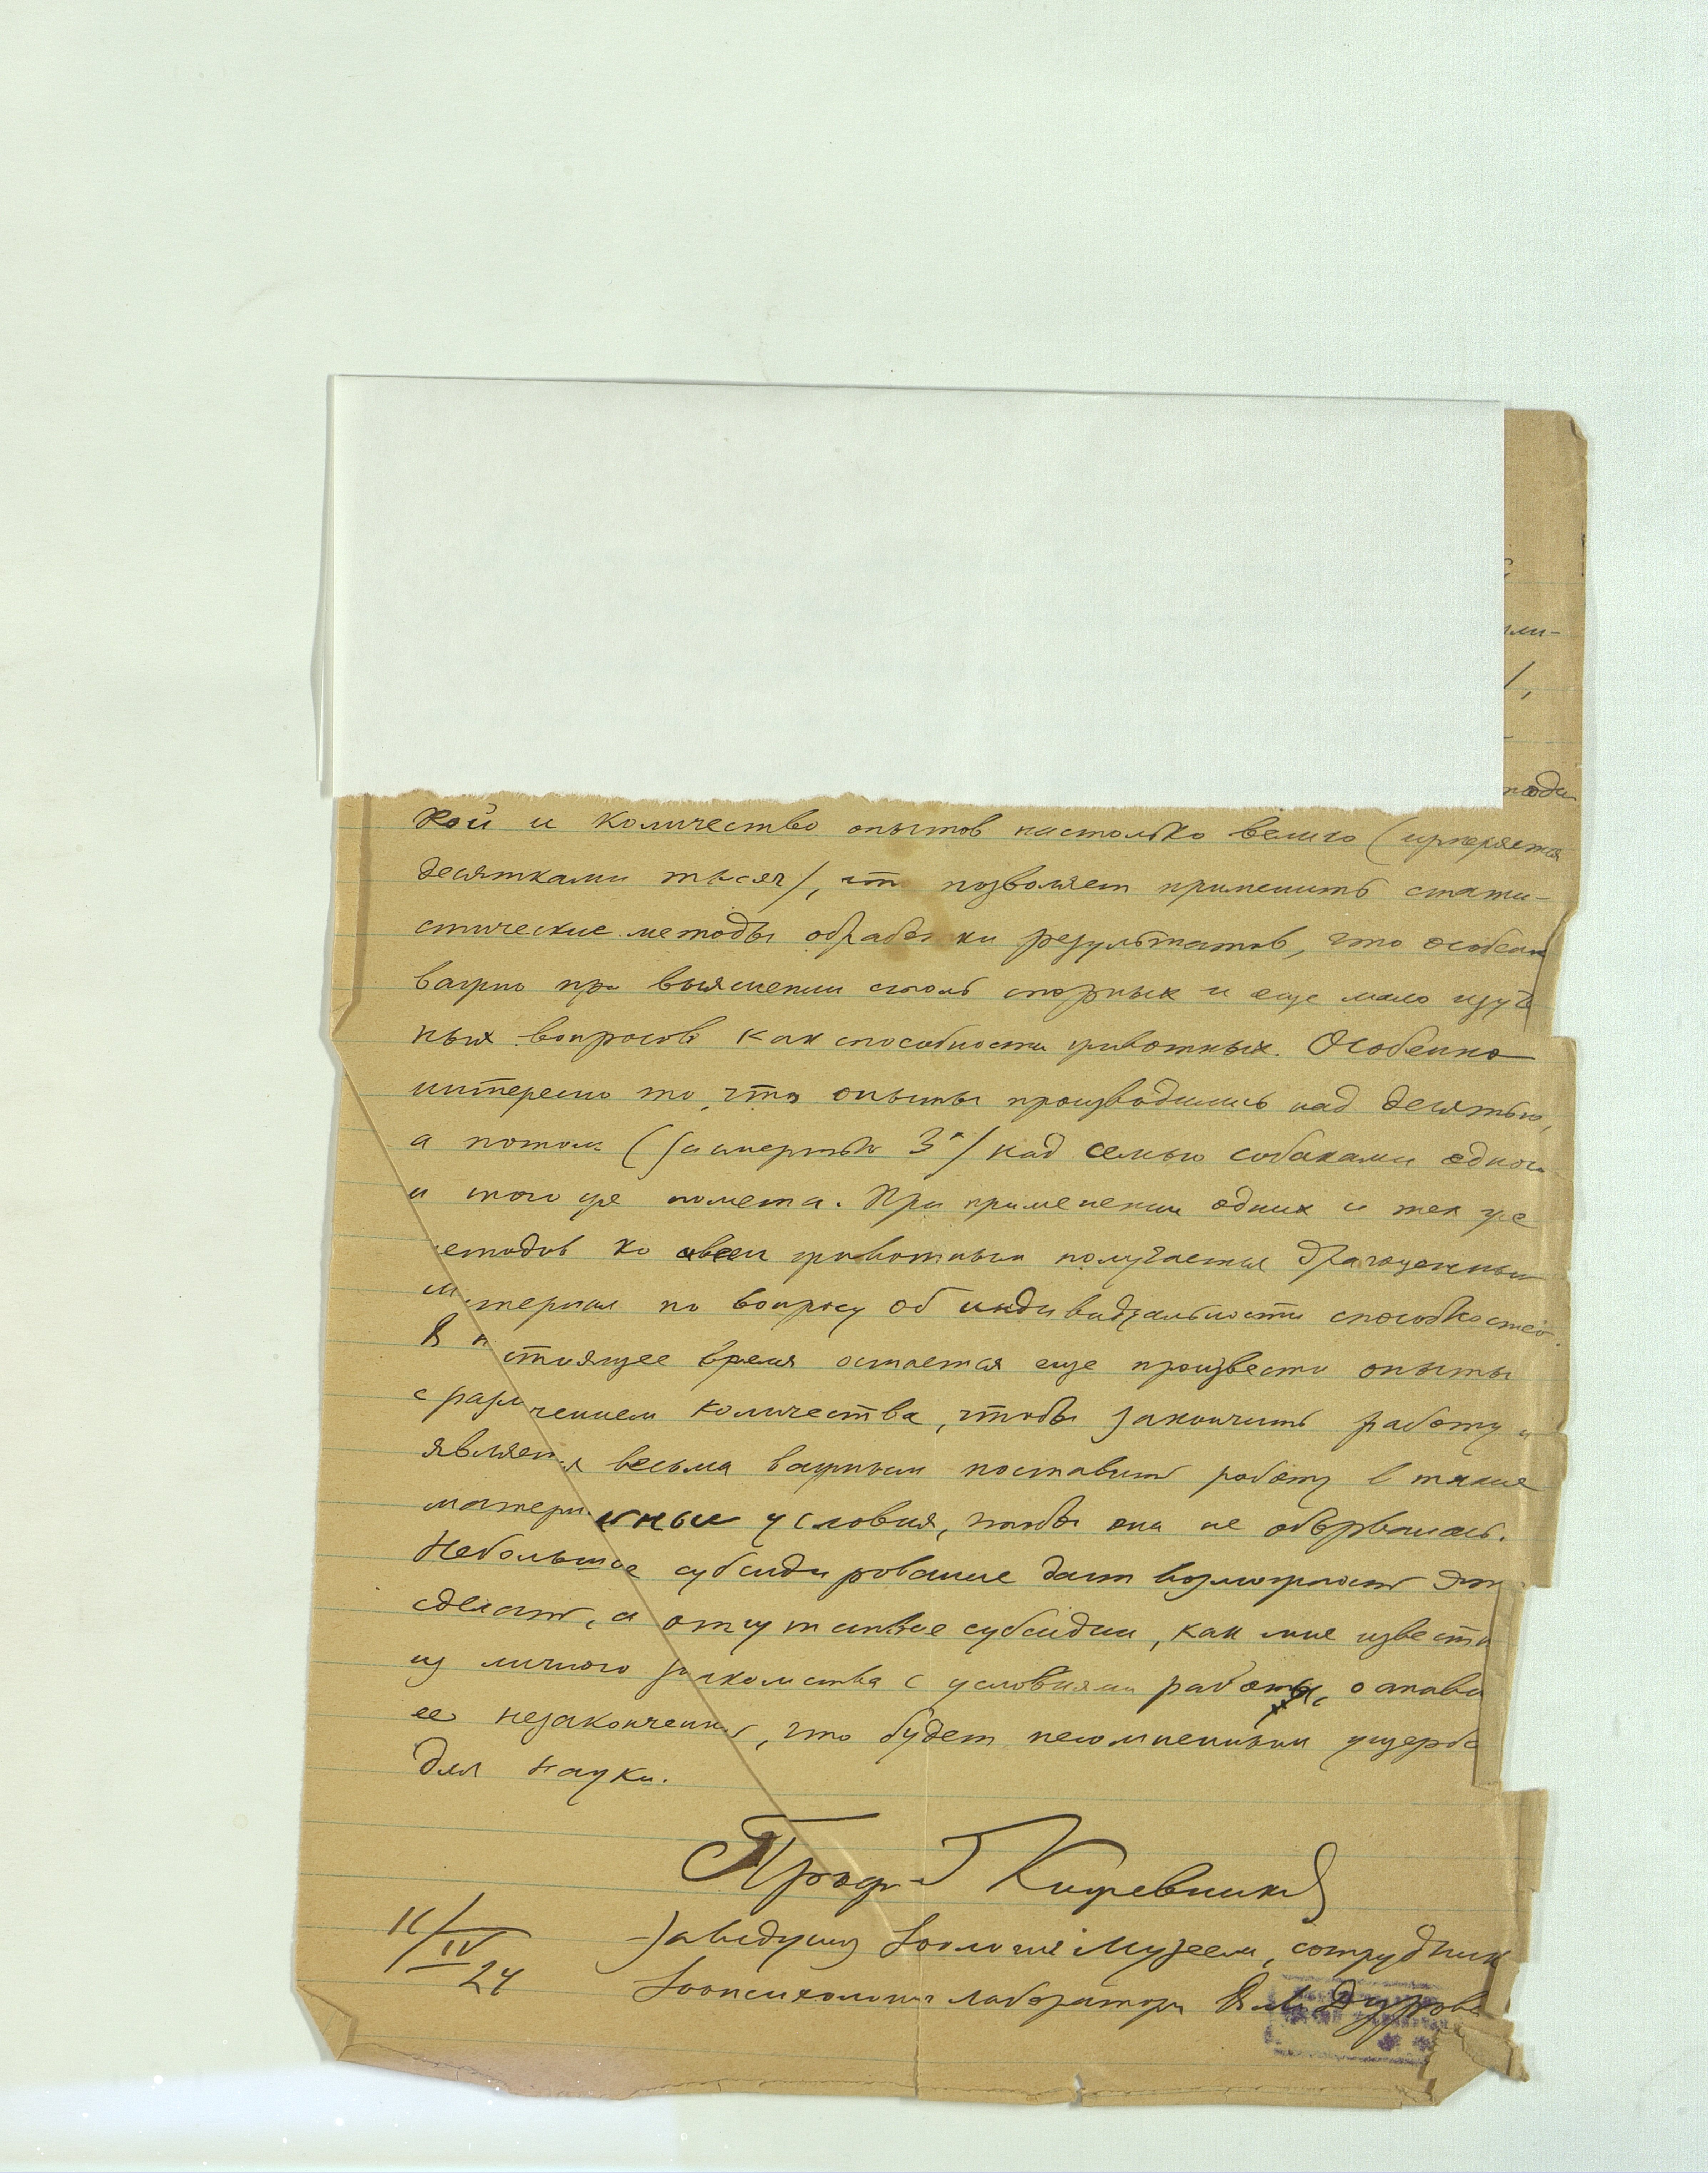 ли-
/,
тоди
кой и количество опытов настолько велико (измеряется
десятками тысяч), что позволяет применить стати-
стические методы обработки результатов, что особен
важно при выяснении столь спорных и еще мало изуч
ных вопросов как способности животных. Особенно
интересно то, что опыты производились над десятью,
а потом (за смертью 3х) над семью собаками одного
и того же помета. При применении одних и тех же
методов ко всем животным получается драгоценный
материал по вопросу об индивидуальности способностей.
В н стоящее время остается еще произвести опыты
с разл чением количества, чтобы закончить работу и
является весьма важным поставить работу в такие
матери льные условия, чтобы она не оборвалась.
Небольшое субсидирование даст возможность это
сделать, а отсутствие субсидии, как мне известн
из личного знакомства с условиями работы, остави
ее незаконченной, что будет несомненным ущербо
для науки.
Проф. Г Кожевников
11/IV 24
Заведующ Зоологич Музеем, сотрудник
Зоопсихологич лаборатории В. Л. Дурова